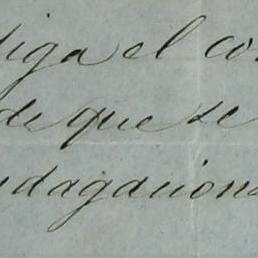 diga el co
de que se
ndagacion